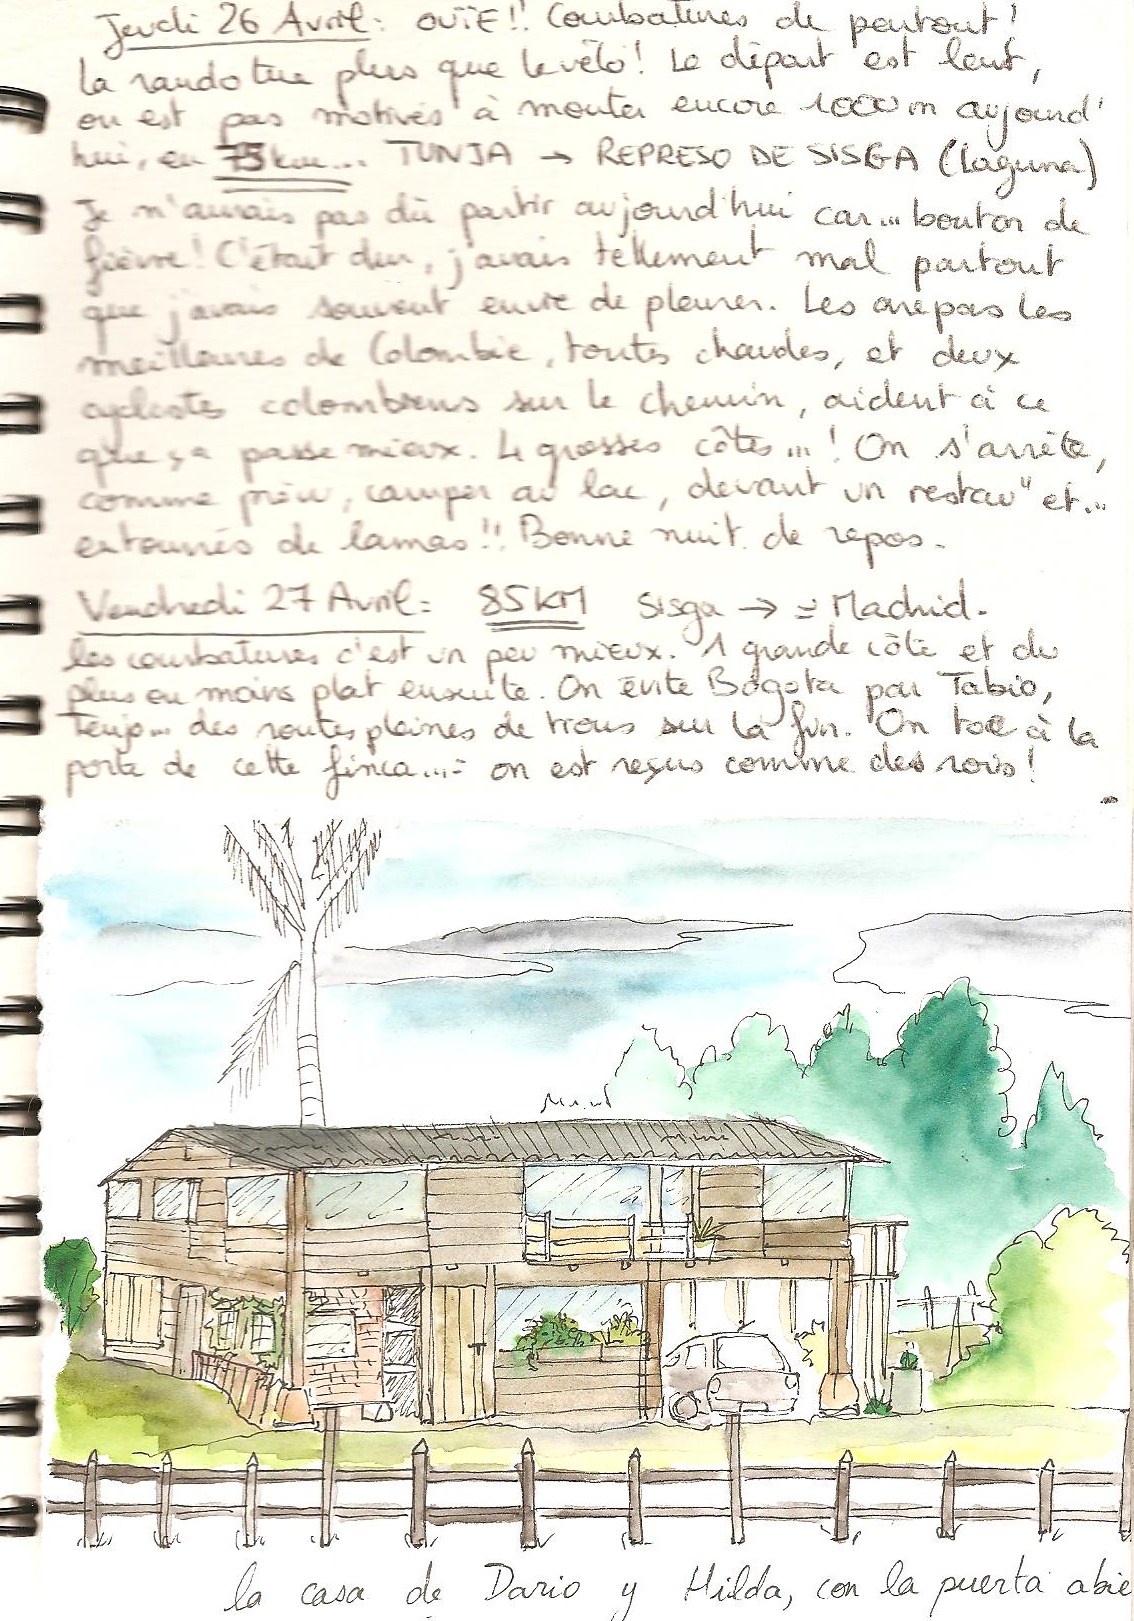 Jeudi 26 Avril : OUÏE!! Courbatures de partout!
la rando tue plus que le vélo! Le départ est lent,
on est pas motivés à monter encore 1000m aujourd'
hui, en 75km... TUNJA → REPRESO DE SISGA (Laguna)
Je n'aurais pas dû partir aujourd'hui car... bouton de
fièvre! C'était dur, j'avais tellement mal partout
que j'avais souvent envie de pleurer. Les arepas les
meilleures de Colombie, toutes chaudes, et deux
cyclistes colombiens sur le chemin, aident à ce
que ça passe mieux. 4 grosses côtes...! On s'arrête,
comme prévu, camper au lac, devant un restau" et...
entourés de lamas!! Bonne nuit de repos.
Vendredi 27 Avril : 85KM Sisga → ≃ Madrid.
les courbatures c'est un peu mieux. 1 grande côte et du
plus ou moins plat ensuite. On évite Bogota par Tabio,
Tenjo... des routes pleines de trous sur la fin. On toc à la
porte de cette finca...: on est reçus comme des rois!
la casa de Dario y Hilda, con la puerta abie